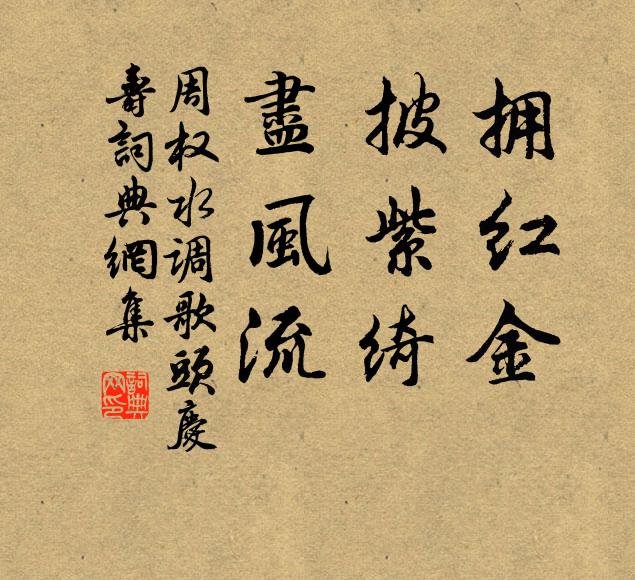 拥红金
披紫绮
盡風流
周权水调歌頭慶
壽詞典網集
詞典網印